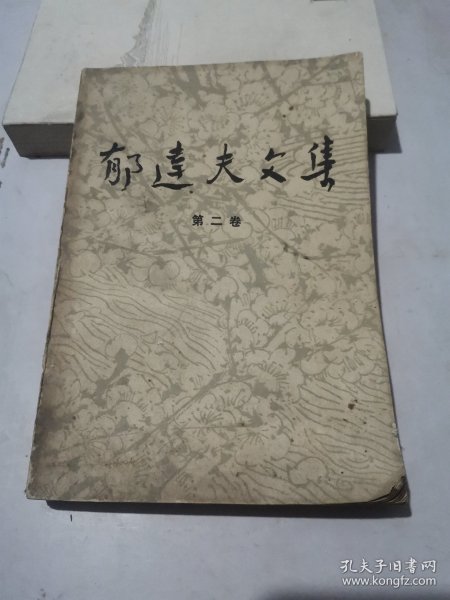 郁达夫文集
第二卷
孔夫子旧书网
www.kongfz.com